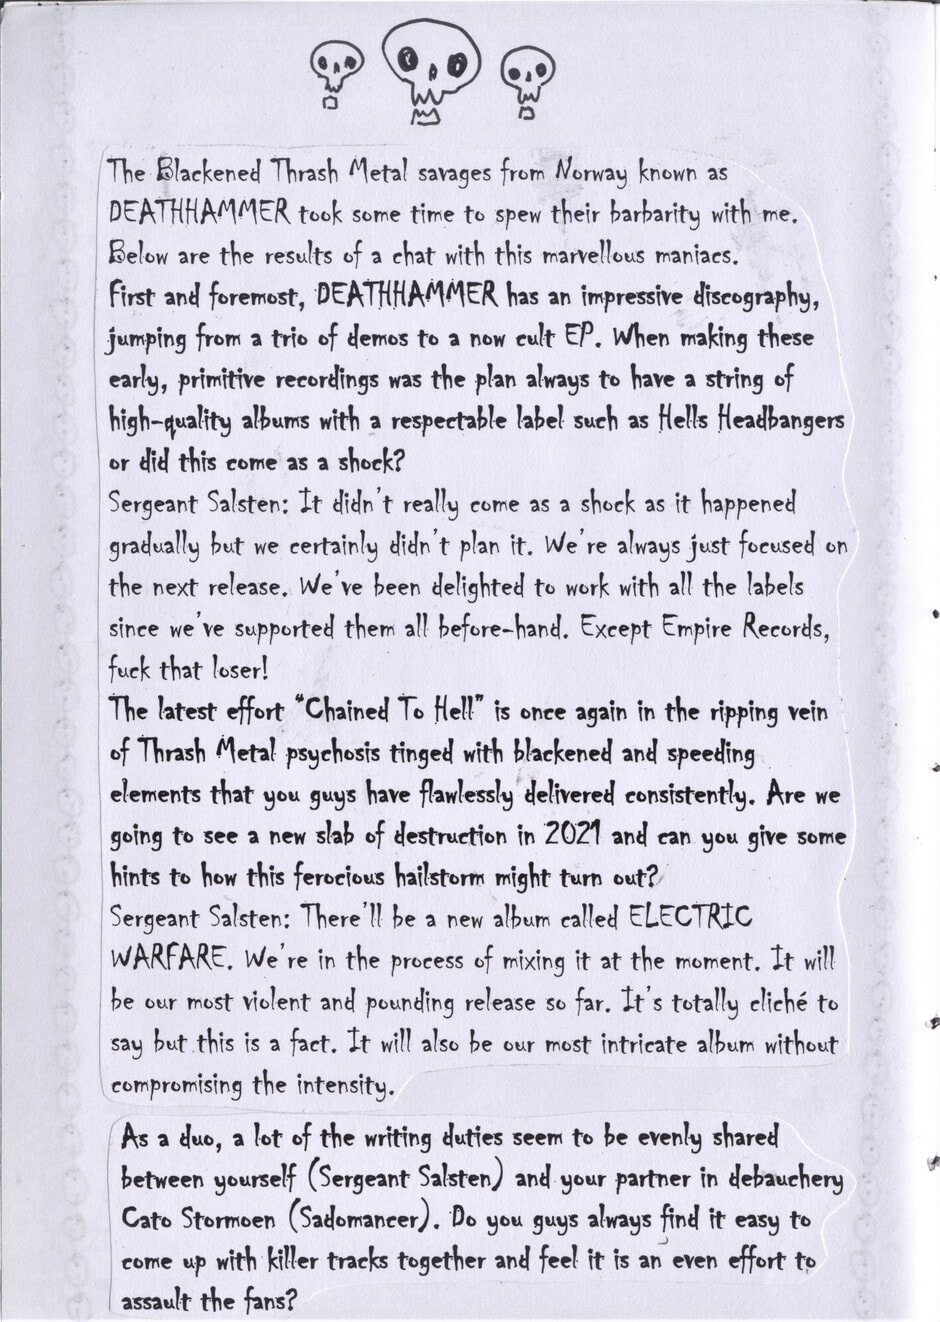 The Blackened Thrash Metal savages from Norway known as
DEATHHAMMER took some time to spew their barbarity with me.
Below are the results of a chat with this marvellous maniacs.
First and foremost, DEATHHAMMER has an impressive discography,
jumping from a trio of demos to a now cult EP. When making these
early, primitive recordings was the plan always to have a string of
high-quality albums with a respectable label such as Hells Headbangers
or did this come as a shock?
Sergeant Salsten: It didn't really come as a shock as it happened
gradually but we certainly didn't plan it. We're always just focused on
the next release. We've been delighted to work with all the labels
since we've supported them all before-hand. Except Empire Records,
fuck that loser!
The latest effort “Chained To Hell” is once again in the ripping vein
of Thrash Metal psychosis tinged with blackened and speeding
elements that you guys have flawlessly delivered consistently. Are we
going to see a new slab of destruction in 2021 and can you give some
hints to how this ferocious hailstorm might turn out?
Sergeant Salsten: There'll be a new album called ELECTRIC
WARFARE. We're in the process of mixing it at the moment. It will
be our most violent and pounding release so far. It's totally cliché to
say but this is a fact. It will also be our most intricate album without
compromising the intensity.
As a duo, a lot of the writing duties seem to be evenly shared
between yourself (Sergeant Salsten) and your partner in debauchery
Cato Stormoen (Sadomancer). Do you guys always find it easy to
come up with killer tracks together and feel it is an even effort to
assault the fans?